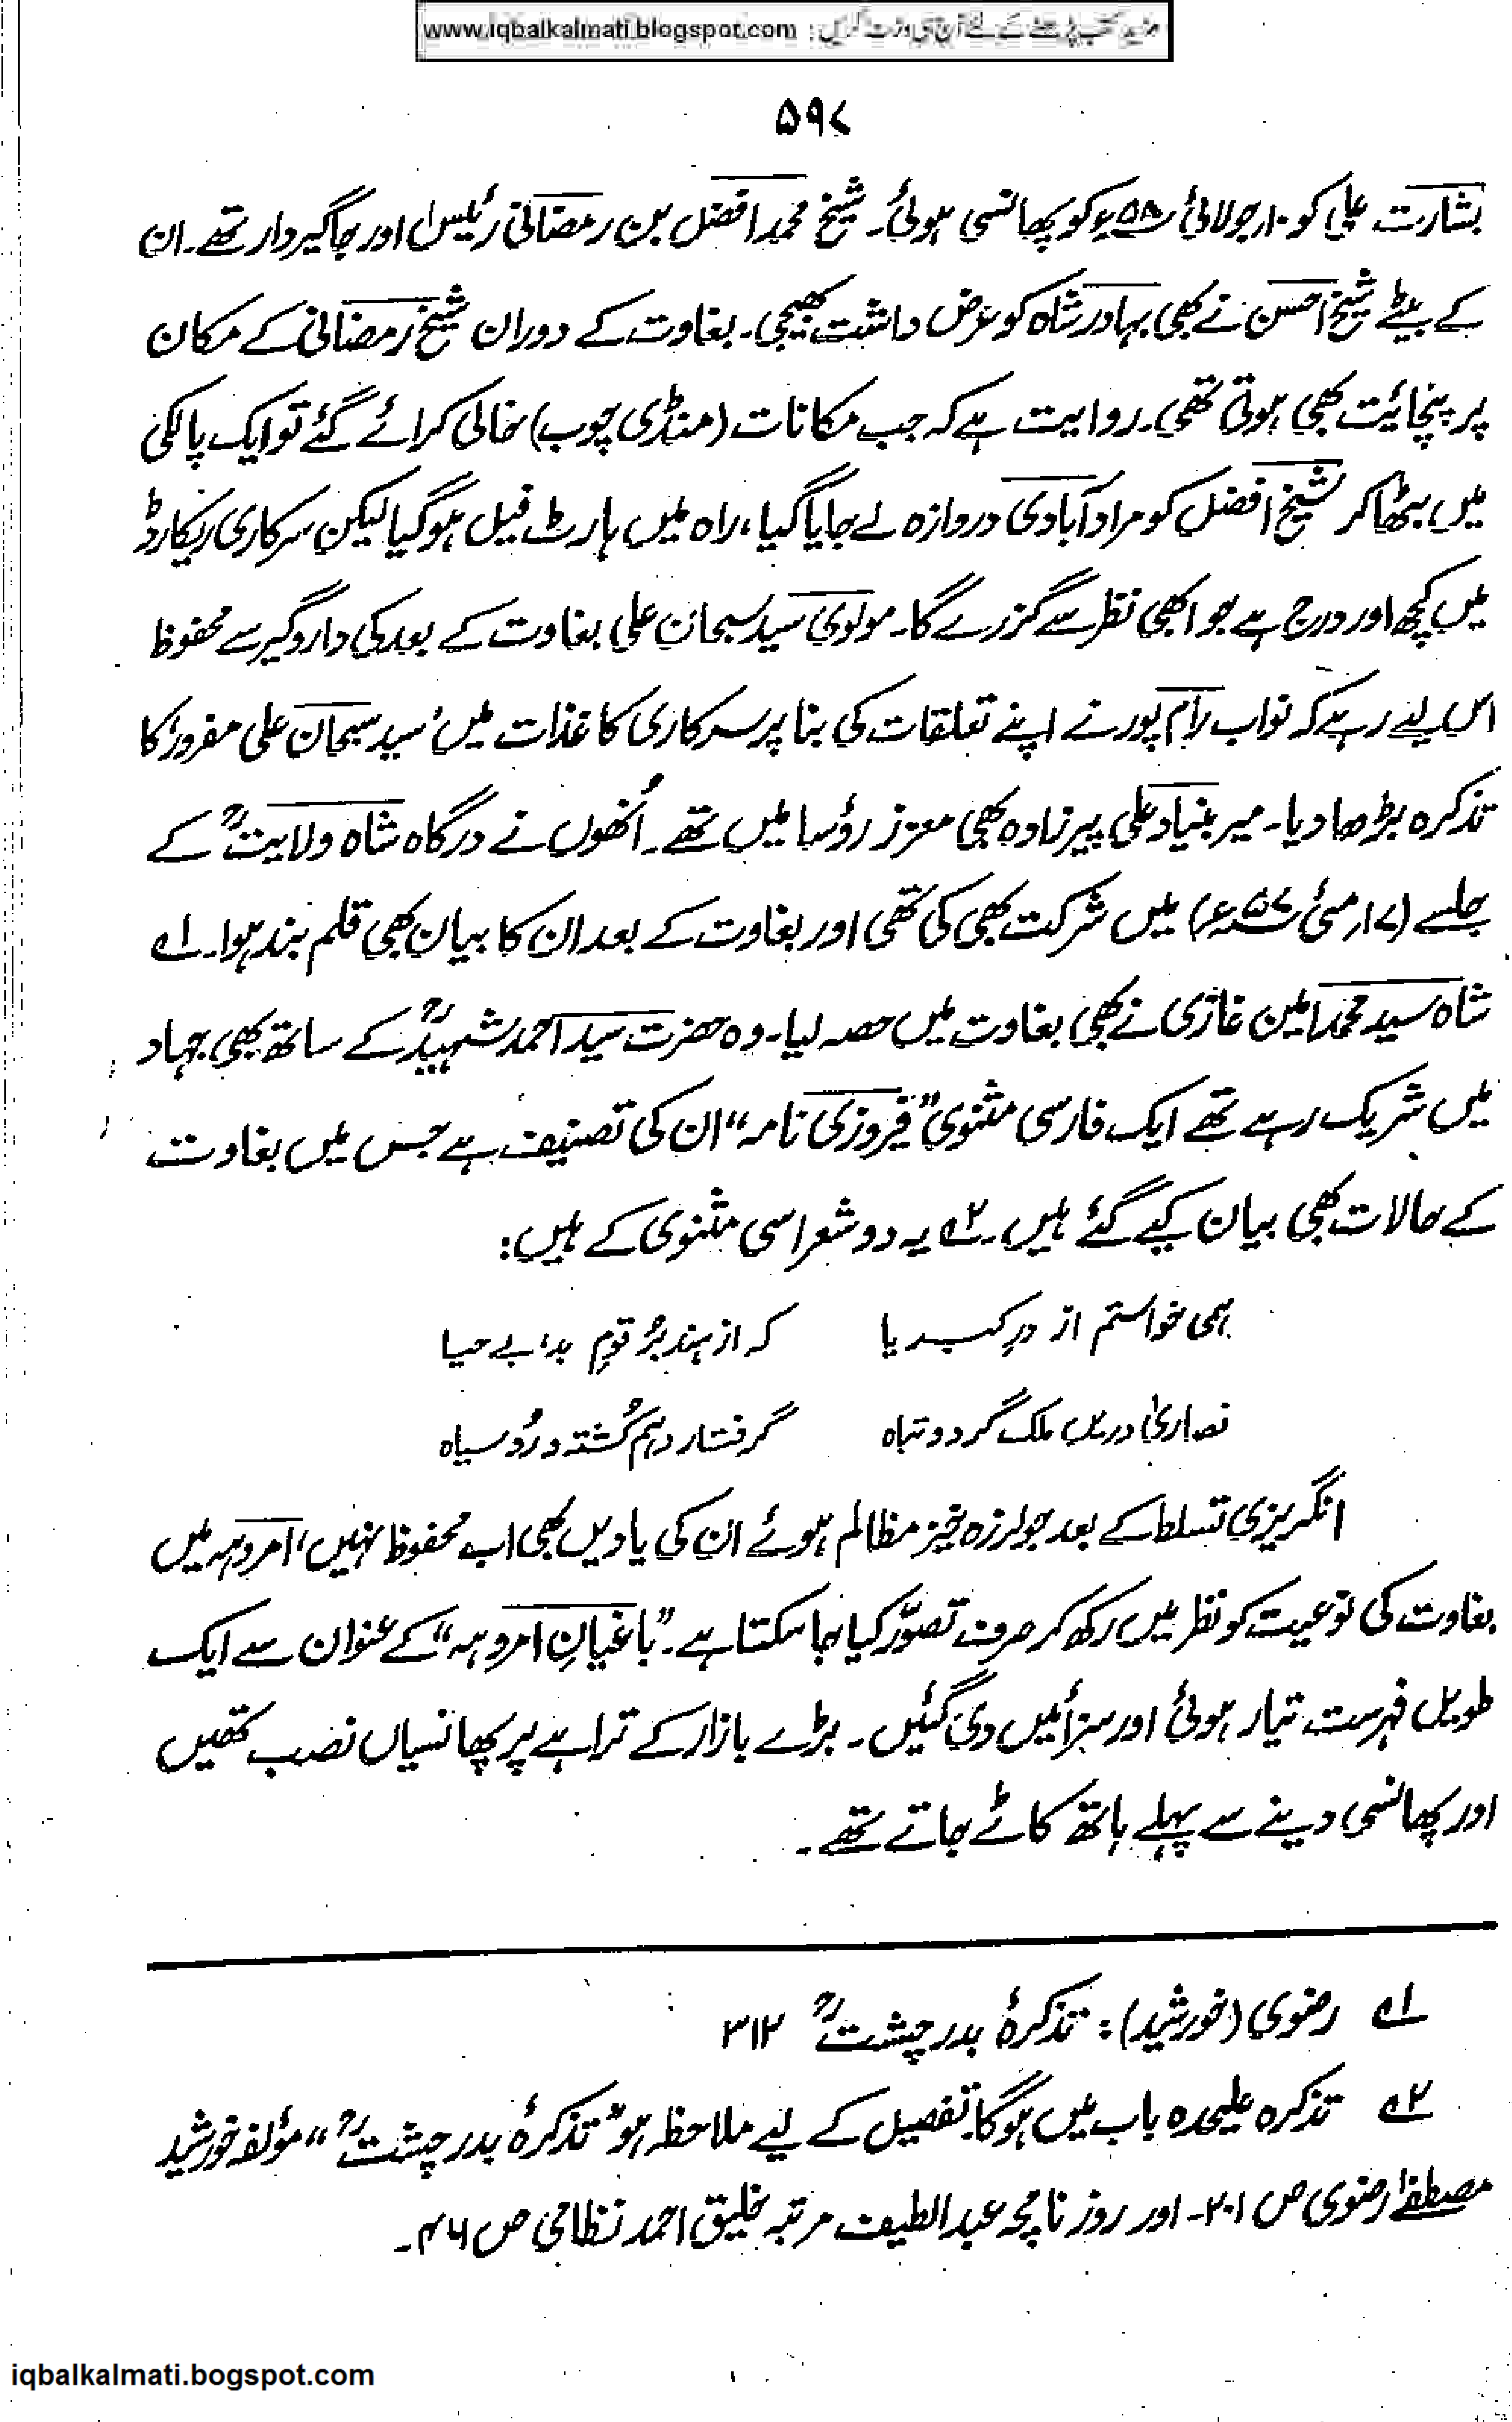 مزید کتب پڑھنے کے لئے آج ہی وزٹ کریں : www.iqbalkalmati.blogspot.com
۵۹۷
بشارت علی کو ۱۰؍جولائی ۵۸ء کو پھانسی ہوئی۔ شیخ محمد افضل بن رمضانی رئیس اور جاگیردار تھے۔ ان
کے بیٹے شیخ احسن نے بھی بہادر شاہ کو عرض داشت بھیجی۔ بغاوت کے دوران شیخ رمضانی کے مکان
پر پنچائیت بھی ہوتی تھی۔ روایت ہے کہ جب مکانات (منڈی چوب) خالی کرائے گئے تو ایک پالکی
میں بٹھا کر شیخ افضل کو مرادآبادی دروازہ لے جایا گیا، راہ میں ہارٹ فیل ہوگیا لیکن سرکاری ریکارڈ
میں کچھ اور درج ہے جو ابھی نظر سے گزرے گا۔ مولوی سید سبحان علی بغاوت کے بعد کی داروگیر سے محفوظ
اس لیے رہے کہ نواب رام پور نے اپنے تعلقات کی بنا پر سرکاری کاغذات میں ’سید سبحان علی مفرور‘ کا
تذکرہ بڑھا دیا۔ میر بنیاد علی پیرزادہ بھی معزز رؤسا میں تھے۔ اُنھوں نے درگاہ شاہ ولایتؒ کے
جلسے (۱۷؍مئی ۵۷ء) میں شرکت بھی کی تھی اور بغاوت کے بعد ان کا بیان بھی قلم بند ہوا۔ ۱ے
شاہ سید محمد امین غازی نے بھی بغاوت میں حصہ لیا۔ وہ حضرت سید احمد شہیدؒ کے ساتھ بھی جہاد
میں شریک رہے تھے ایک فارسی مثنوی ”فیروزی نامہ“ ان کی تصنیف ہے جس میں بغاوت
کے حالات بھی بیان کیے گئے ہیں۔ ۲ے یہ دو شعر اسی مثنوی کے ہیں:
ہمی خواستم از درِ کبریا کہ از ہند بُر قوم بد، بے حیا
نصاریٰ دریں ملک گردد تباہ گرفتار و ہم کُشتہ و رُو سیاہ
انگریزی تسلط کے بعد جو لرزہ خیز مظالم ہوئے ان کی یادیں بھی اب محفوظ نہیں، امروہہ میں
بغاوت کی نوعیت کو نظر میں رکھ کر صرف تصوّر کیا جاسکتا ہے۔ ”باغیانِ امروہہ“ کے عنوان سے ایک
طویل فہرست تیار ہوئی اور سزائیں دی گئیں۔ بڑے بازار کے تراہے پر پھانسیاں نصب تھیں
اور پھانسی دینے سے پہلے ہاتھ کاٹے جاتے تھے۔
۱ے رضوی (خورشید): تذکرۂ بدر چشتؒ ۳۱۲
۲ے تذکرہ علیحدہ باب میں ہوگا۔ تفصیل کے لیے ملاحظہ ہو ”تذکرۂ بدر چشتؒ“ مؤلفہ خورشید
مصطفےٰ رضوی ص ۲۰۱۔ اور روزنامچہ عبداللطیف مرتبہ خلیق احمد نظامی ص ۴۶۔
iqbalkalmati.bogspot.com